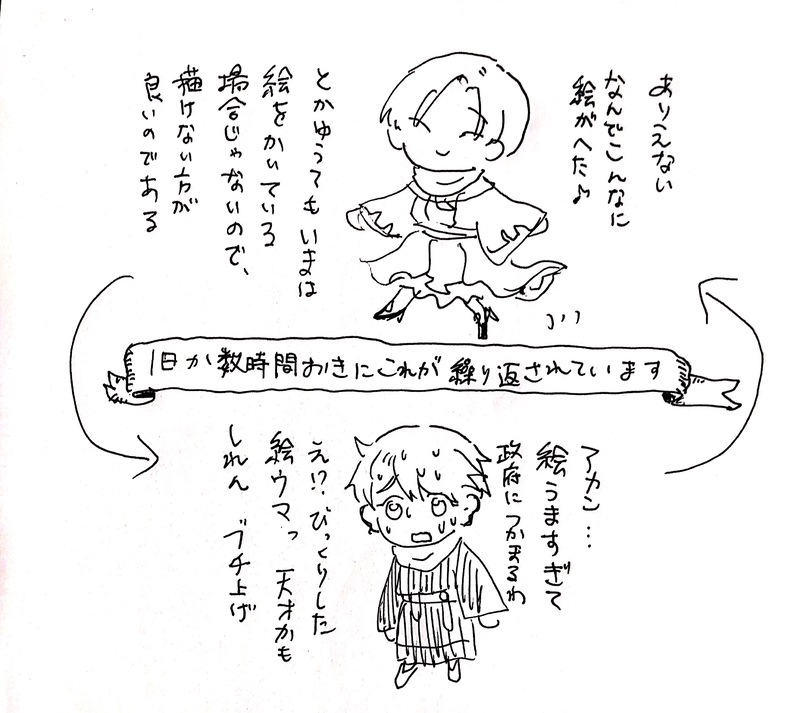 ありえない
なんでこんなに
絵がへた♪
とかゆうてもいまは
絵をかいている
場合じゃないので、
描けない方が
良いのである
1日か数時間おきにこれが繰り返されています
アカン…
絵うますぎて
政府につかまるわ
え!?びっくりした
絵ウマっ 天才かも
しれん ブチ上げ